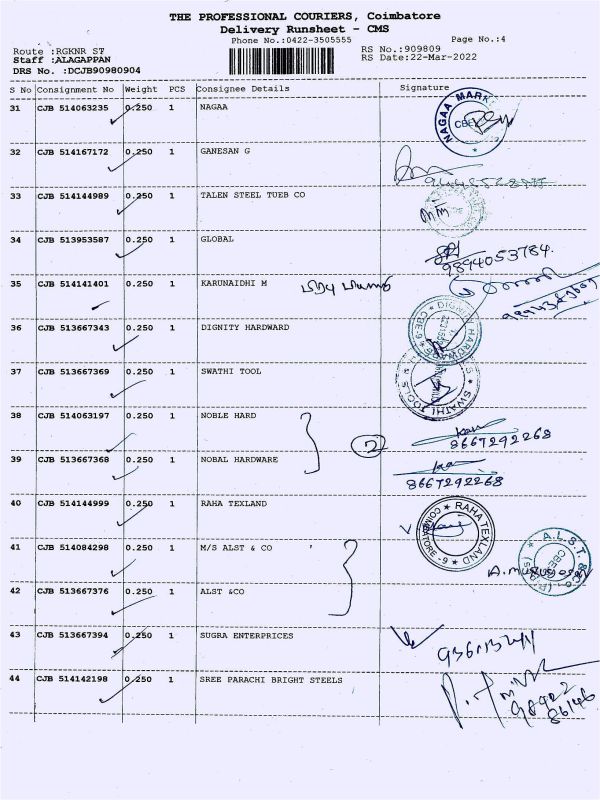 THE PROFESSIONAL COURIERS, Coimbatore
Delivery Runsheet - CMS
Phone No.:0422-3505555 Page No.:4
Route :RGKNR ST RS No.:909809
Staff :ALAGAPPAN RS Date:22-Mar-2022
DRS No. :DCJB90980904
S No Consignment No Weight PCS Consignee Details Signature
31 CJB 514063235 0.250 1 NAGAA
NAGAA MARK
CBE
32 CJB 514167172 0.250 1 GANESAN G
33 CJB 514144989 0.250 1 TALEN STEEL TUEB CO
34 CJB 513953587 0.250 1 GLOBAL
9894053784.
35 CJB 514141401 0.250 1 KARUNAIDHI M
36 CJB 513667343 0.250 1 DIGNITY HARDWARE
DIGNITY HARDWARE
CBE-9
37 CJB 513667369 0.250 1 SWATHI TOOL
SWATHI TOOLS
38 CJB 514063197 0.250 1 NOBLE HARD
2
8667292268
39 CJB 513667368 0.250 1 NOBAL HARDWARE
8667292268
40 CJB 514144999 0.250 1 RAHA TEXLAND
RAHA TEXLAND
COIMBATORE-9
41 CJB 514084298 0.250 1 M/S ALST & CO
A.L.S.T. & Co.
42 CJB 513667376 0.250 1 ALST &CO
43 CJB 513667394 0.250 1 SUGRA ENTERPRICES
44 CJB 514142198 0.250 1 SREE PARACHI BRIGHT STEELS